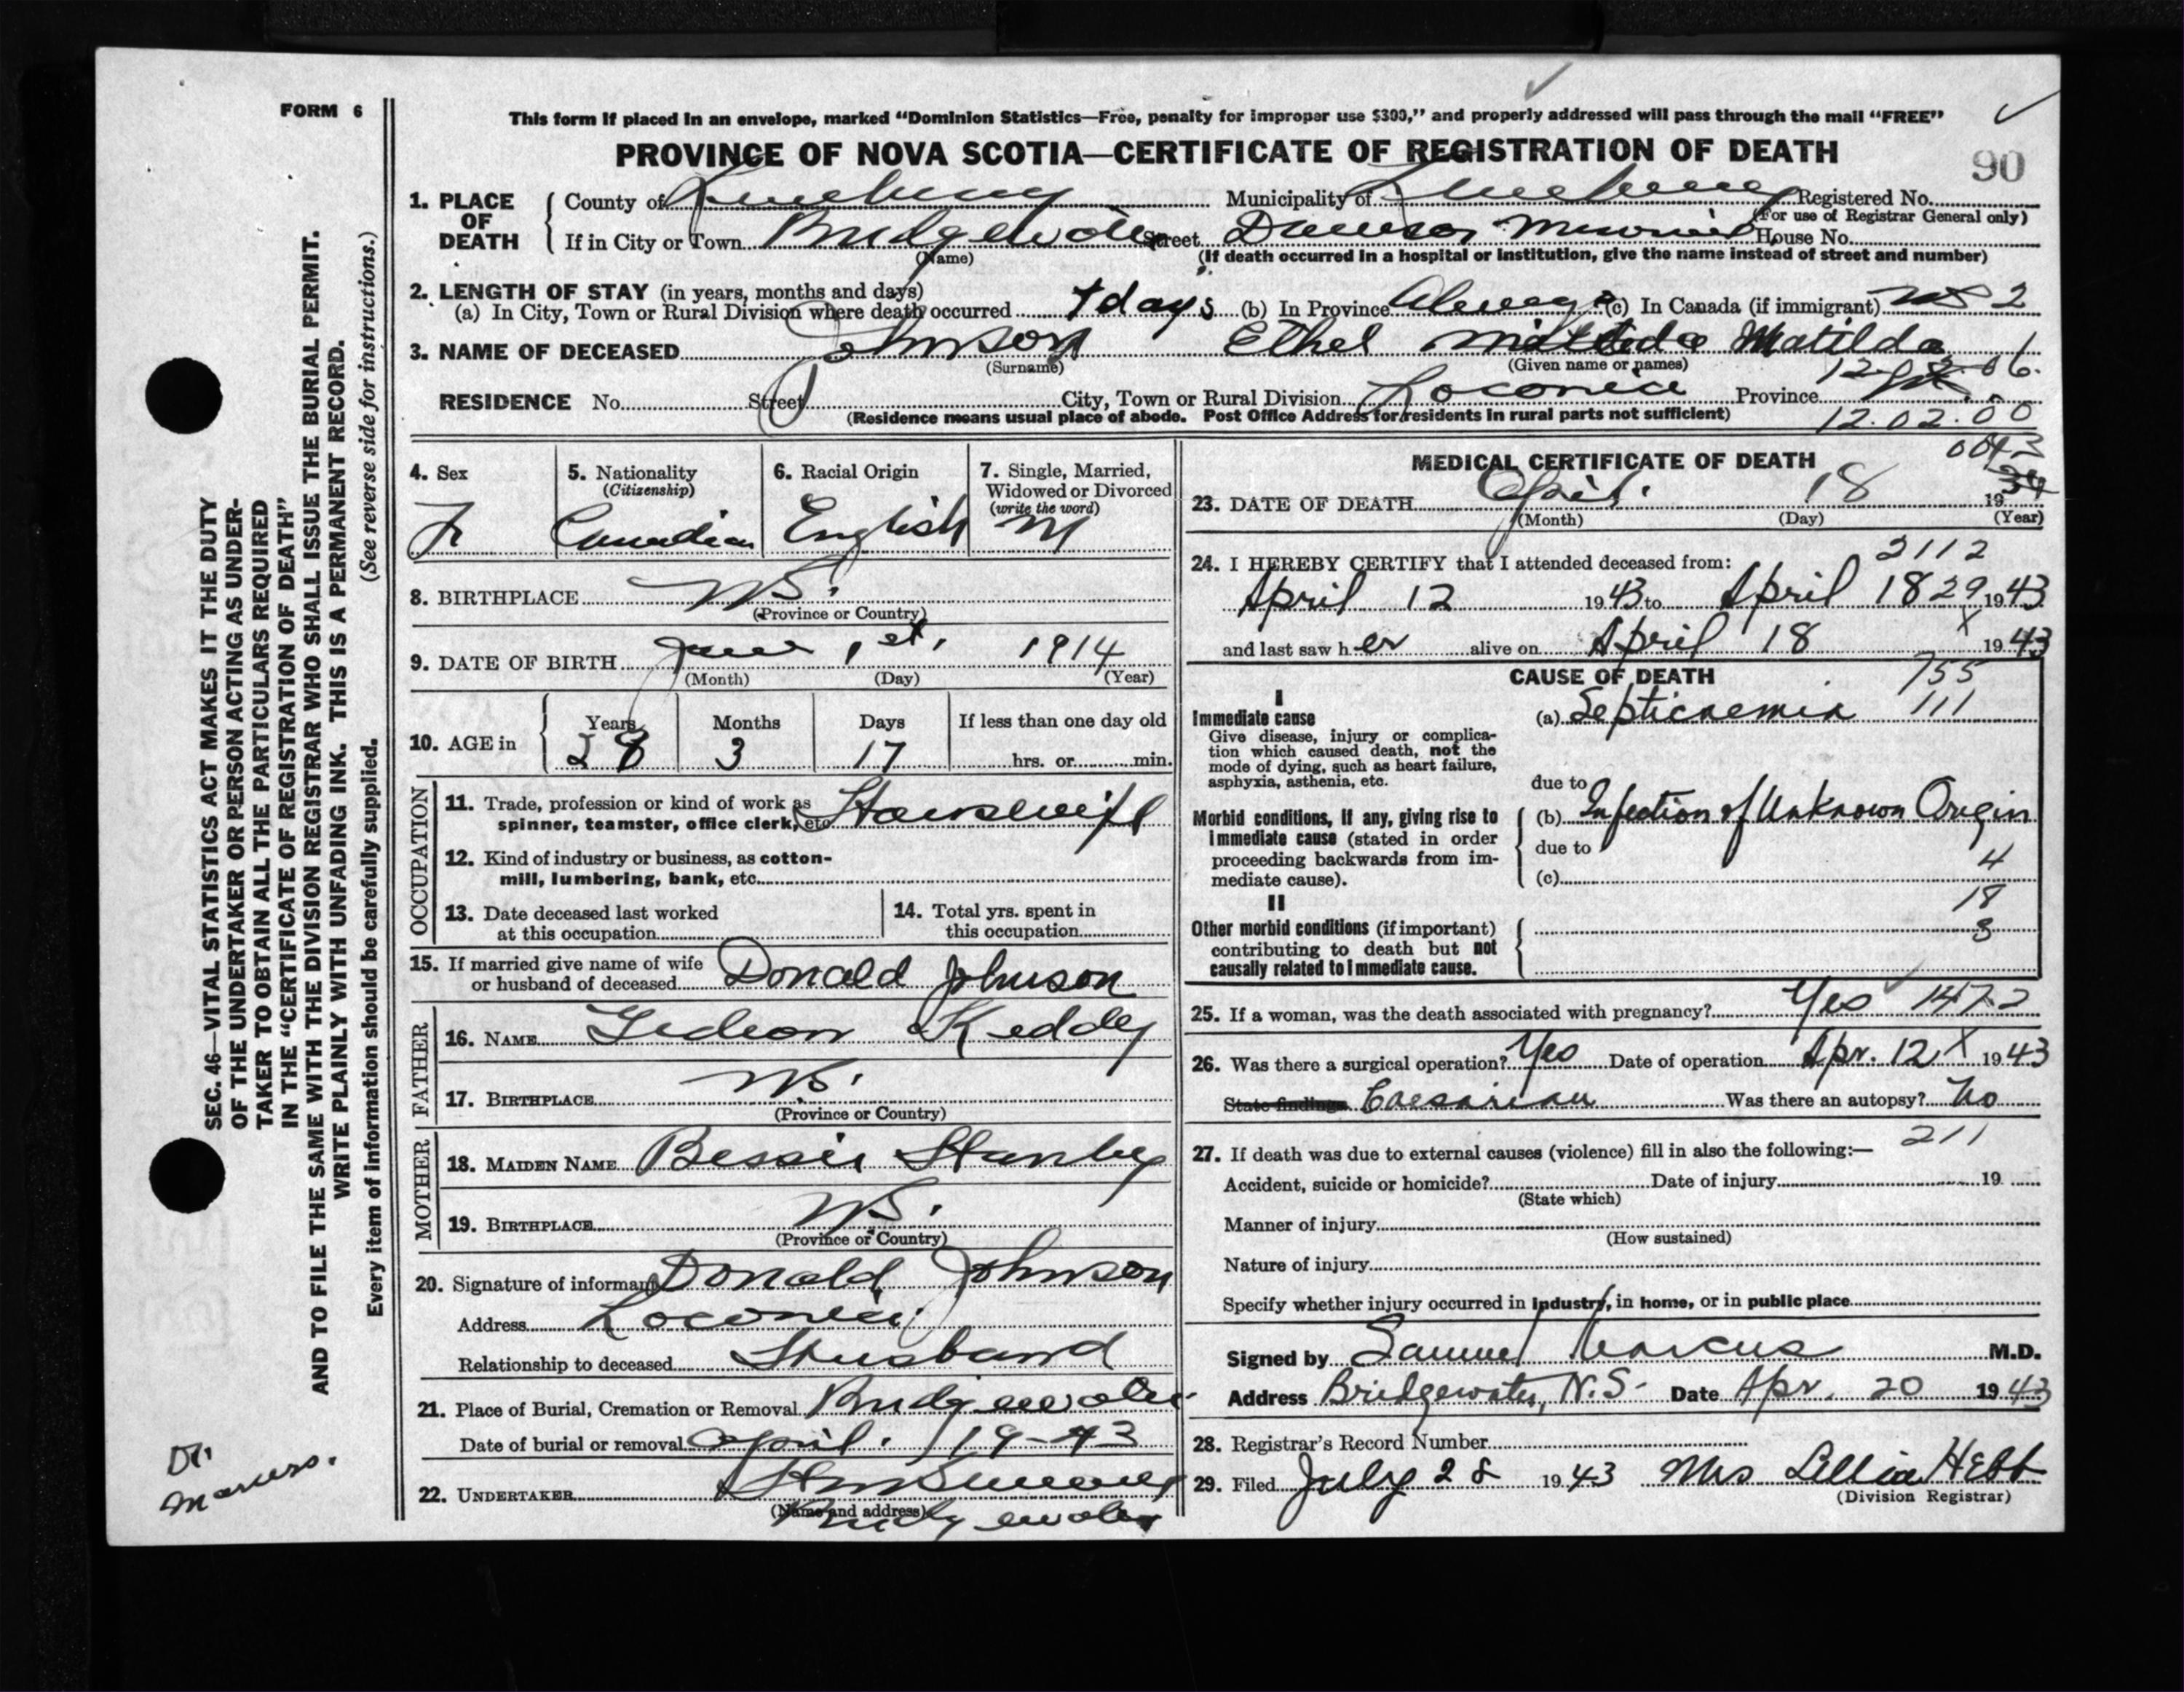 FORM 6
This form if placed in an envelope, marked “Dominion Statistics—Free, penalty for improper use $300,” and properly addressed will pass through the mail “FREE”
PROVINCE OF NOVA SCOTIA—CERTIFICATE OF REGISTRATION OF DEATH
90
1. PLACE OF DEATH
County of Lunenburg Municipality of Lunenburg Registered No.
(For use of Registrar General only)
If in City or Town Bridgewater Street Dawson Memorial House No.
(Name)
(If death occurred in a hospital or institution, give the name instead of street and number)
2. LENGTH OF STAY (in years, months and days)
(a) In City, Town or Rural Division where death occurred 7 days (b) In Province Always (c) In Canada (if immigrant) 2
3. NAME OF DECEASED Johnson Ethel Matilda
(Surname) (Given name or names)
12 06.
RESIDENCE No. Street City, Town or Rural Division Province
(Residence means usual place of abode. Post Office Address for residents in rural parts not sufficient)
12.02.00
4. Sex F
5. Nationality (Citizenship) Canadian
6. Racial Origin English
7. Single, Married, Widowed or Divorced (write the word) M
8. BIRTHPLACE NS.
(Province or Country)
9. DATE OF BIRTH 1st. 1914
(Month) (Day) (Year)
10. AGE in Years 28 Months 3 Days 17 If less than one day old hrs. or min.
OCCUPATION
11. Trade, profession or kind of work as spinner, teamster, office clerk, etc. Housewife
12. Kind of industry or business, as cotton-mill, lumbering, bank, etc.
13. Date deceased last worked at this occupation
14. Total yrs. spent in this occupation
15. If married give name of wife or husband of deceased Donald Johnson
FATHER
16. NAME Gideon Keddy
17. BIRTHPLACE NS.
(Province or Country)
MOTHER
18. MAIDEN NAME Bessie Stanley
19. BIRTHPLACE NS.
(Province or Country)
20. Signature of informant Donald Johnson
Address
Relationship to deceased Husband
21. Place of Burial, Cremation or Removal Bridgewater
Date of burial or removal April. 19-43
22. UNDERTAKER
(Name and address)
Bridgewater
MEDICAL CERTIFICATE OF DEATH
23. DATE OF DEATH April. 18 19 43
(Month) (Day) (Year)
24. I HEREBY CERTIFY that I attended deceased from:
2112
April 12 1943 to April 18 29 1943
and last saw her alive on April 18 1943
CAUSE OF DEATH
755
111
I
Immediate cause
Give disease, injury or complication which caused death, not the mode of dying, such as heart failure, asphyxia, asthenia, etc.
(a) Septicaemia
due to
Morbid conditions, if any, giving rise to immediate cause (stated in order proceeding backwards from immediate cause).
(b) Infection of Unknown Origin
due to
4
(c)
18
II
3
Other morbid conditions (if important) contributing to death but not causally related to immediate cause.
25. If a woman, was the death associated with pregnancy? Yes 1472
26. Was there a surgical operation? Yes Date of operation Apr. 12 X 1943
State findings Caesarian Was there an autopsy? No
211
27. If death was due to external causes (violence) fill in also the following:—
Accident, suicide or homicide? Date of injury 19
(State which)
Manner of injury
(How sustained)
Nature of injury
Specify whether injury occurred in industry, in home, or in public place
Signed by Samuel Marcus M.D.
Address Bridgewater, N.S. Date Apr. 20 1943
28. Registrar's Record Number
29. Filed July 28 1943 Mrs Lillia Hebb
(Division Registrar)
SEC. 46—VITAL STATISTICS ACT MAKES IT THE DUTY
OF THE UNDERTAKER OR PERSON ACTING AS UNDER-
TAKER TO OBTAIN ALL THE PARTICULARS REQUIRED
IN THE “CERTIFICATE OF REGISTRATION OF DEATH”
AND TO FILE THE SAME WITH THE DIVISION REGISTRAR WHO SHALL ISSUE THE BURIAL PERMIT.
WRITE PLAINLY WITH UNFADING INK. THIS IS A PERMANENT RECORD.
Every item of information should be carefully supplied. (See reverse side for instructions.)
Dr.
Marcus.